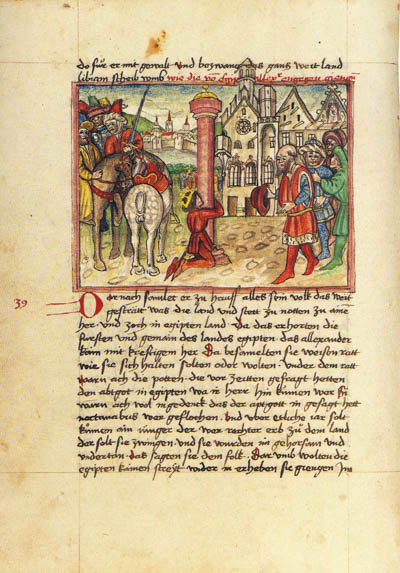 do für er mit gewalt und bezwang das gans wert land
libiam scheib umb wie die vō egipten allex engegen giengen
39
Dernach samlet er zu hauff alles sein volk das weit
gesträt was die land und stett zu notten zu ame
her und zoch in egipten land Da das erhorten die
fursten und gemain des landes egipten das allexander
kam mit kreftigem her Da besamelten sie werbn ratt
wie sie sich halten solten oder wolten under dem ratt
warn ach die potten die vor zeitten gefragt hetten
den abtgot in egipten wa ir herr hin kumen wer Si
warn ach wol in gedenck das der aptgott in gesagt hett
noctanabus wer geflochen Und uber etliche iar solt
kumen ain iunger der wer rechter erb zu dem land
der solt sie zwingen und sie wurden im gehorsam und
undertan das sagten sie dem folk Dar umb wolten die
egipten kainen streyt wider in erheben sie giengen im